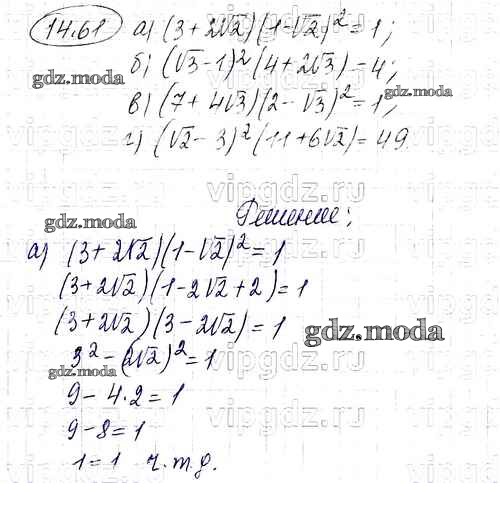 14.61 а) (3+2√2)(1-√2)² = 1;
б) (√3-1)²(4+2√3) = 4;
gdz.moda
в) (7+4√3)(2-√3)² = 1;
г) (√2-3)²(11+6√2) = 49.
vipgdz.ru
gdz.moda
Решение;
а) (3+2√2)(1-√2)² = 1
vipgdz.ru
(3+2√2)(1-2√2+2) = 1
(3+2√2)(3-2√2) = 1
gdz.moda
3² - (2√2)² = 1
gdz.moda
vipgdz.ru
9 - 4·2 = 1
9 - 8 = 1
1 = 1 ч.т.д.
vipgdz.ru